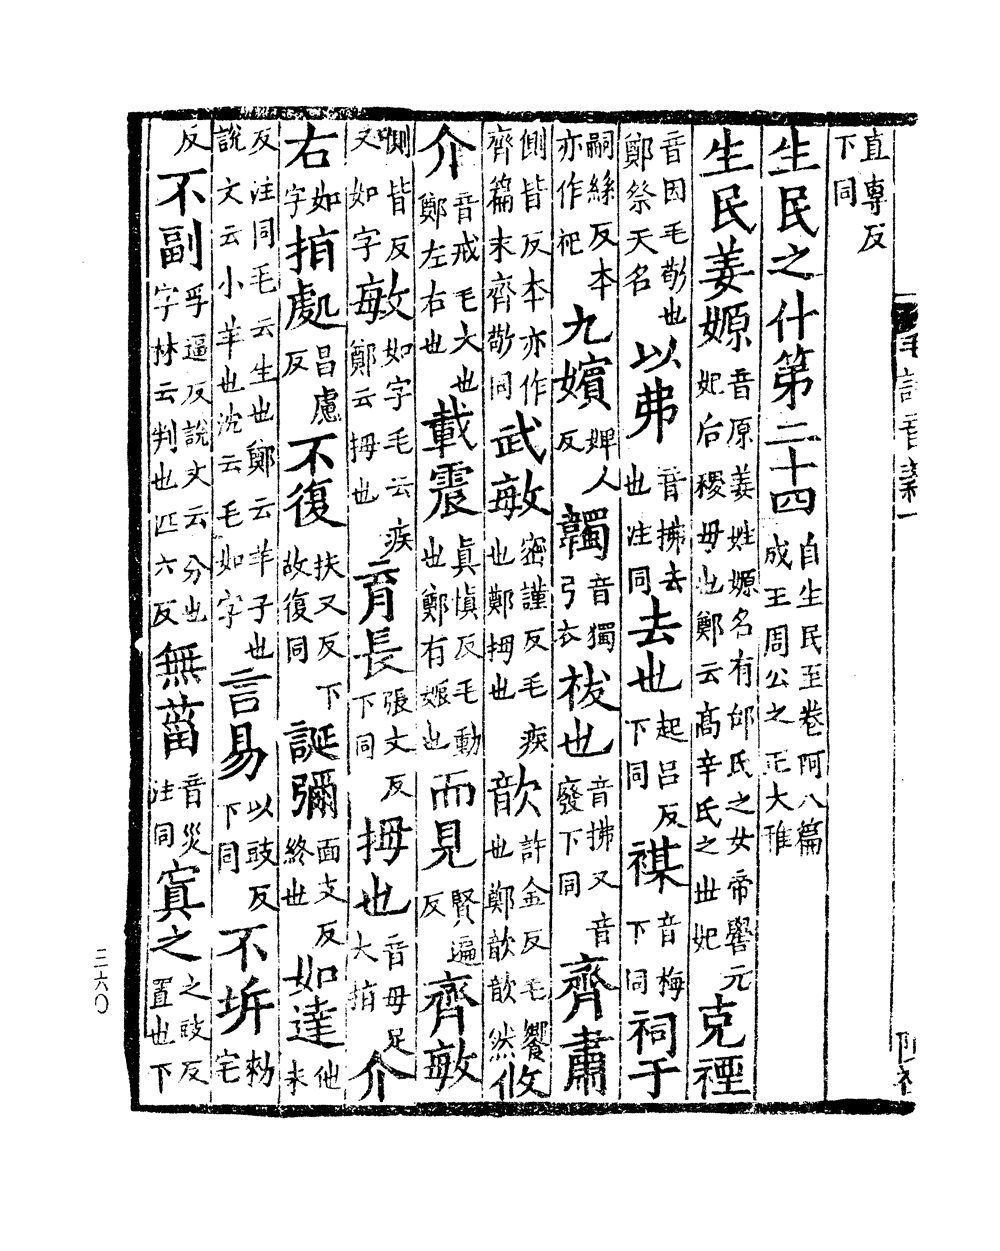 直專反下同
生民之什第二十四自生民至卷阿八篇成王周公之正大雅
生民姜嫄音原姜姓嫄名有邰氏之女帝嚳元妃后稷母也鄭云高辛氏之世妃克禋
音因毛敬也鄭祭天名以弗音拂去也注同去也起呂反下同禖音梅下同祠于
嗣絲反本亦作祀九嬪婢人反韣音獨弓衣祓也音拂又音發下同齊肅
側皆反本亦作齊篇末齊敬同武敏密謹反毛疾也鄭拇也歆許金反毛饗也鄭歆歆然攸
介音戒毛大也鄭左右也載震真慎反毛動也鄭有娠也而見賢遍反齊敏
側皆反又如字敏如字毛云疾鄭云拇也育長張丈反下同拇也音母足大指介
右如字指處昌慮反不復扶又反下故復同誕彌面支反終也如達他末
反注同毛云生也鄭云羊子也說文云小羊也沈云毛如字言易以豉反下同不坼敕宅
反不副孚逼反說文云分也字林云判也匹六反無菑音災注同寘之之豉反置也下
三六〇